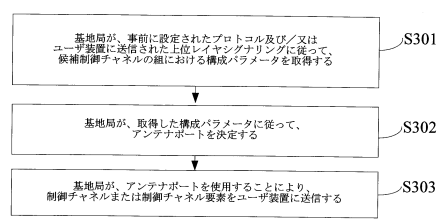 基地局が、事前に設定されたプロトコル及び／又は
ユーザ装置に送信された上位レイヤシグナリングに従って、
候補制御チャネルの組における構成パラメータを取得する
S301
基地局が、取得した構成パラメータに従って、
アンテナポートを決定する
S302
基地局が、アンテナポートを使用することにより、
制御チャネルまたは制御チャネル要素をユーザ装置に送信する
S303